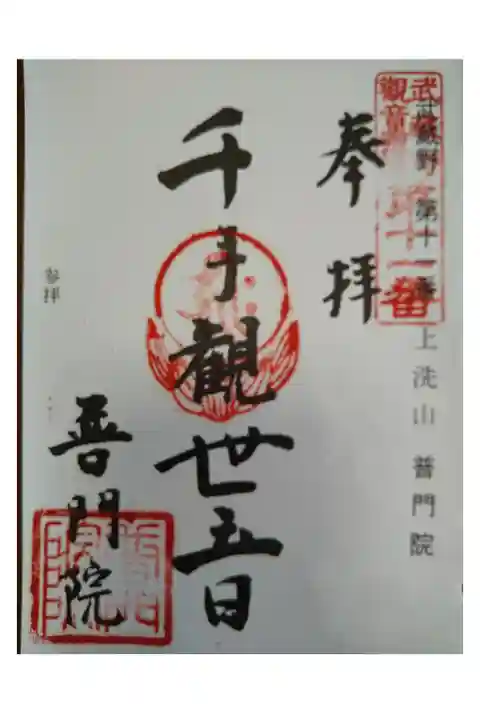 武蔵野 第十一番 上洗山 普門院
奉拝
千手觀世音
普門院
参拝